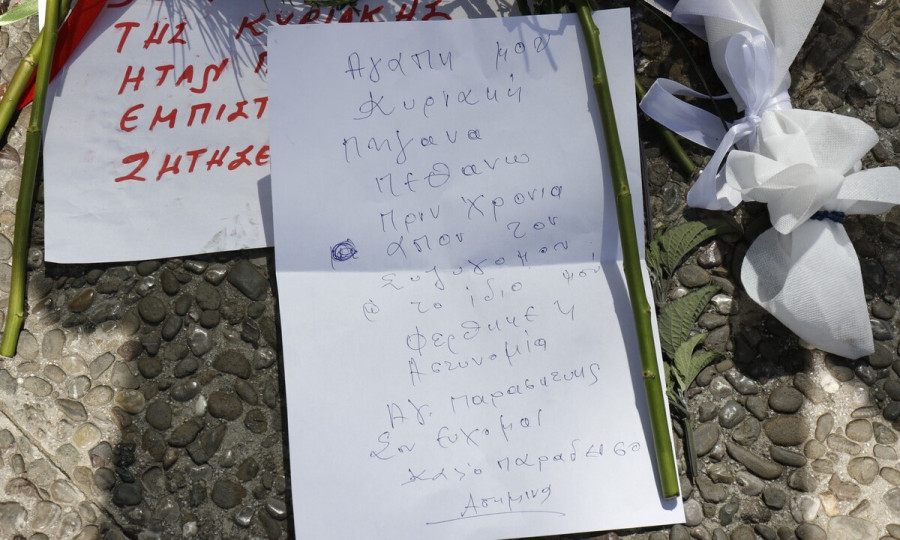 ΤΗΣ ΚΥΡΙΑΚΗΣ
ΗΤΑΝ
ΕΜΠΙΣΤ
ΖΗΤΗΣΕ
Αγάπη μου
Κυριακή
πήγανα
πεθανω
πριν χρονια
απον τον
Συζυγο μου
το ίδιο μού
φερθηκε η
Αστυνομία
Αγ. Παρασκευης
Σου ευχομαι
καλο παραδεισο
Ασημινα